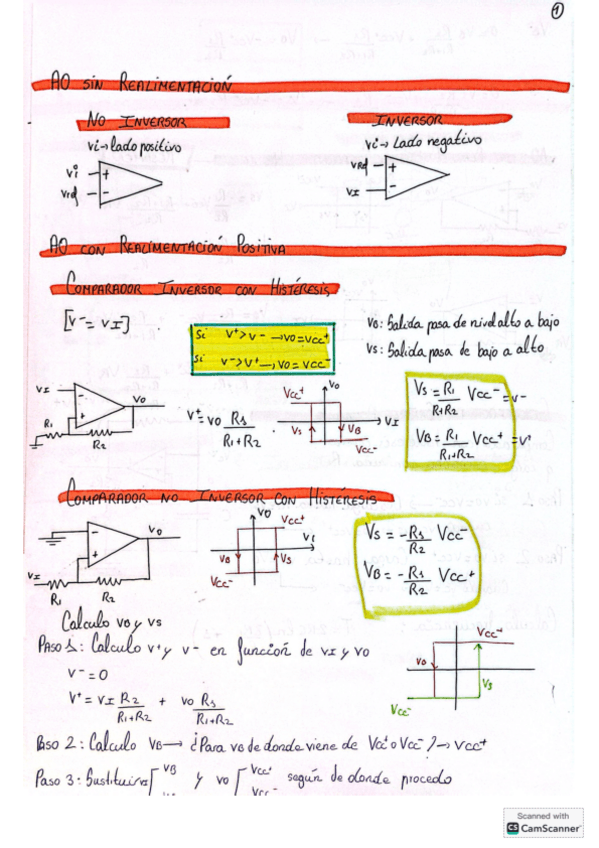 1
AO SIN REALIMENTACIÓN
NO INVERSOR
INVERSOR
Vi→lado positivo
Vi→ lado negativo
Vi +
Vref -
VRef +
VI -
AO CON REALIMENTACIÓN POSITIVA
COMPARADOR INVERSOR CON HISTÉRESIS
[V⁻= VI]
Si V⁺>V⁻ → VO=VCC⁺
Si V⁻>V⁺ → VO=VCC⁻
VB: Salida pasa de nivel alto a bajo
VS: Salida pasa de bajo a alto
VI - + VO
R1 R2
V⁺=VO R1/(R1+R2)
VCC⁺ VO VI VS VB VCC⁻
VS = R1/(R1+R2) VCC⁻ = V⁻
VB = R1/(R1+R2) VCC⁺ = V⁻
COMPARADOR NO INVERSOR CON HISTÉRESIS
- + VO
VI R1 R2
VO VCC⁺ VI VB VS VCC⁻
VS = -R1/R2 VCC⁻
VB = -R1/R2 VCC⁺
Calculo VB y VS
PASO 1: Calculo V⁺ y V⁻ en función de VI y VO
V⁻ = 0
V⁺ = VI R2/(R1+R2) + VO R1/(R1+R2)
VCC⁺ VB VS VCC⁻
Paso 2: Calculo VB → ¿Para VB de donde viene de VCC⁺ o VCC⁻? → VCC⁺
Paso 3: Sustituir VI [VB y VO [VCC⁺ según de donde procedo
VCC⁻
Scanned with
CS CamScanner